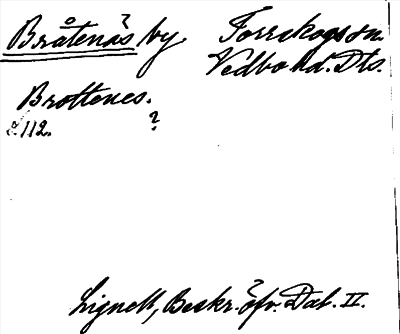 Bråtenäs by. Torrskogs sn.
Vedbo hd. Dls.
Brottenes.
112. ?
Lignell, Beskr. öfv. Dal. II.